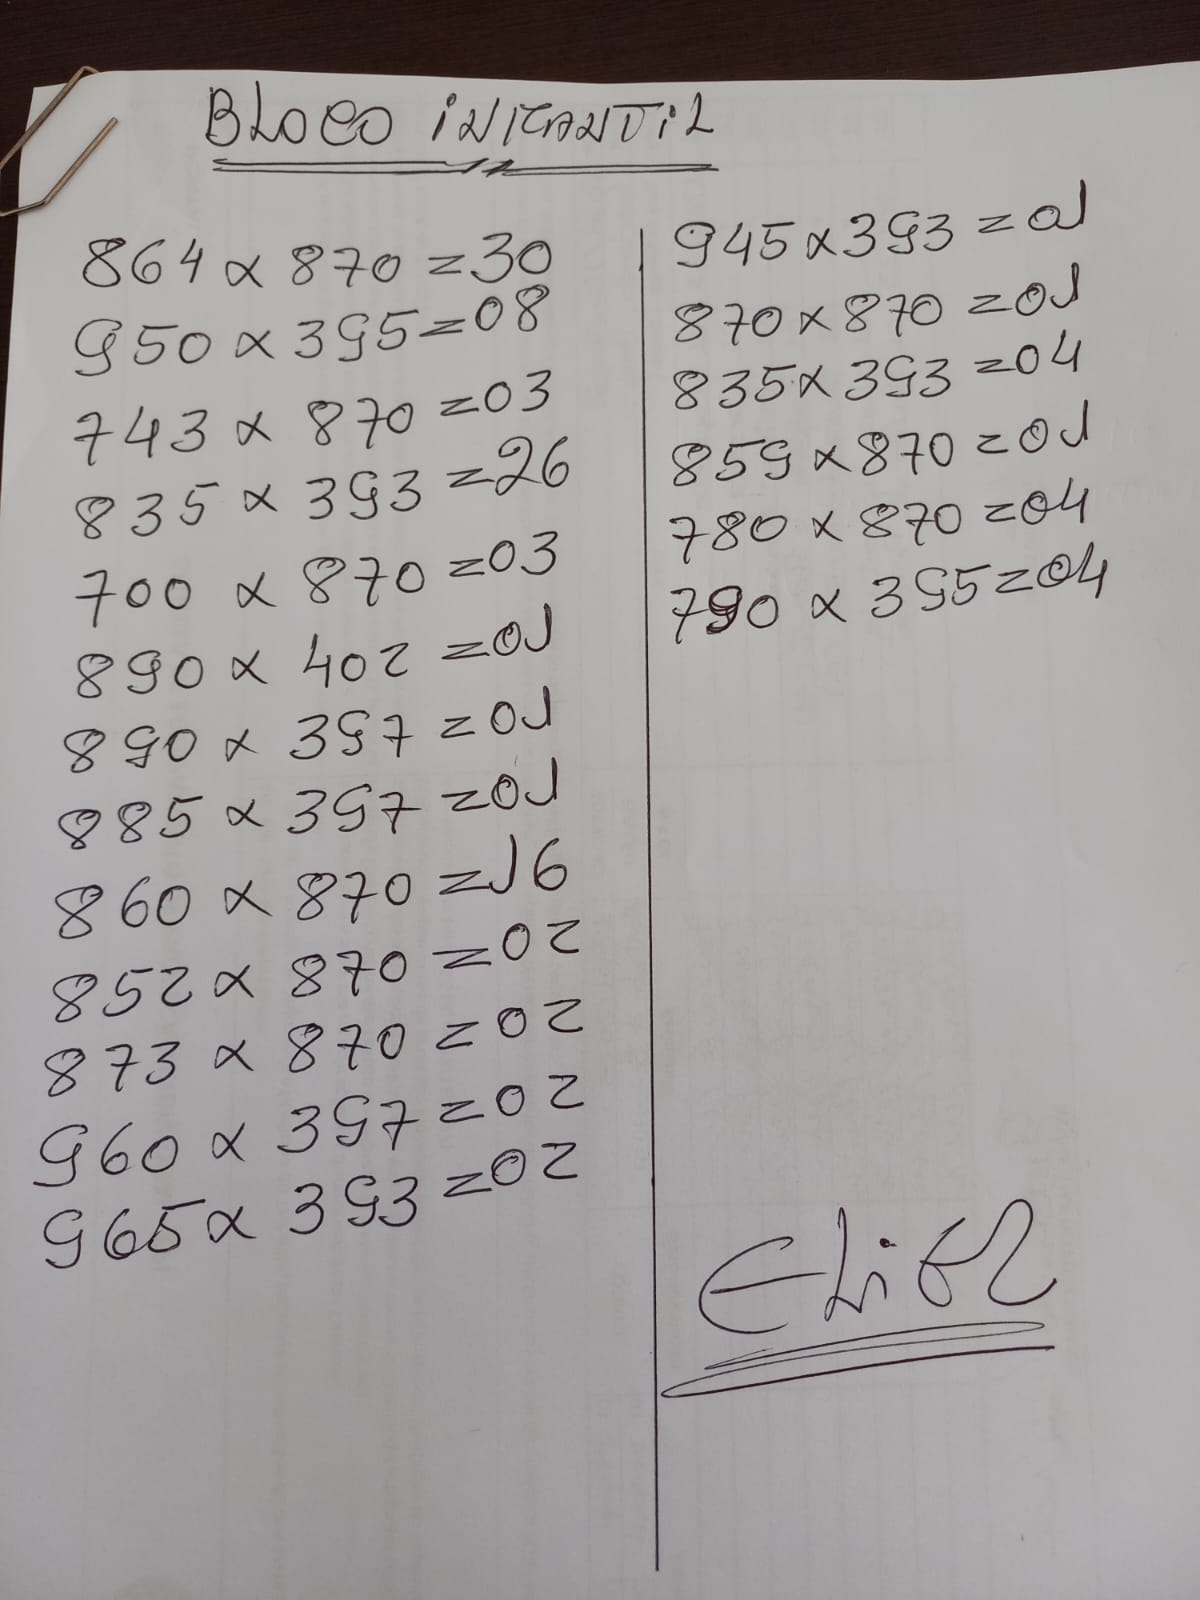 BLOCO iNFANTiL
864 x 870 = 30
950 x 395 = 08
743 x 870 = 03
835 x 393 = 26
700 x 870 = 03
890 x 402 = 01
890 x 397 = 01
885 x 397 = 01
860 x 870 = 16
852 x 870 = 02
873 x 870 = 02
960 x 397 = 02
965 x 393 = 02
945 x 393 = 01
870 x 870 = 01
835 x 393 = 04
859 x 870 = 01
780 x 870 = 04
790 x 395 = 04